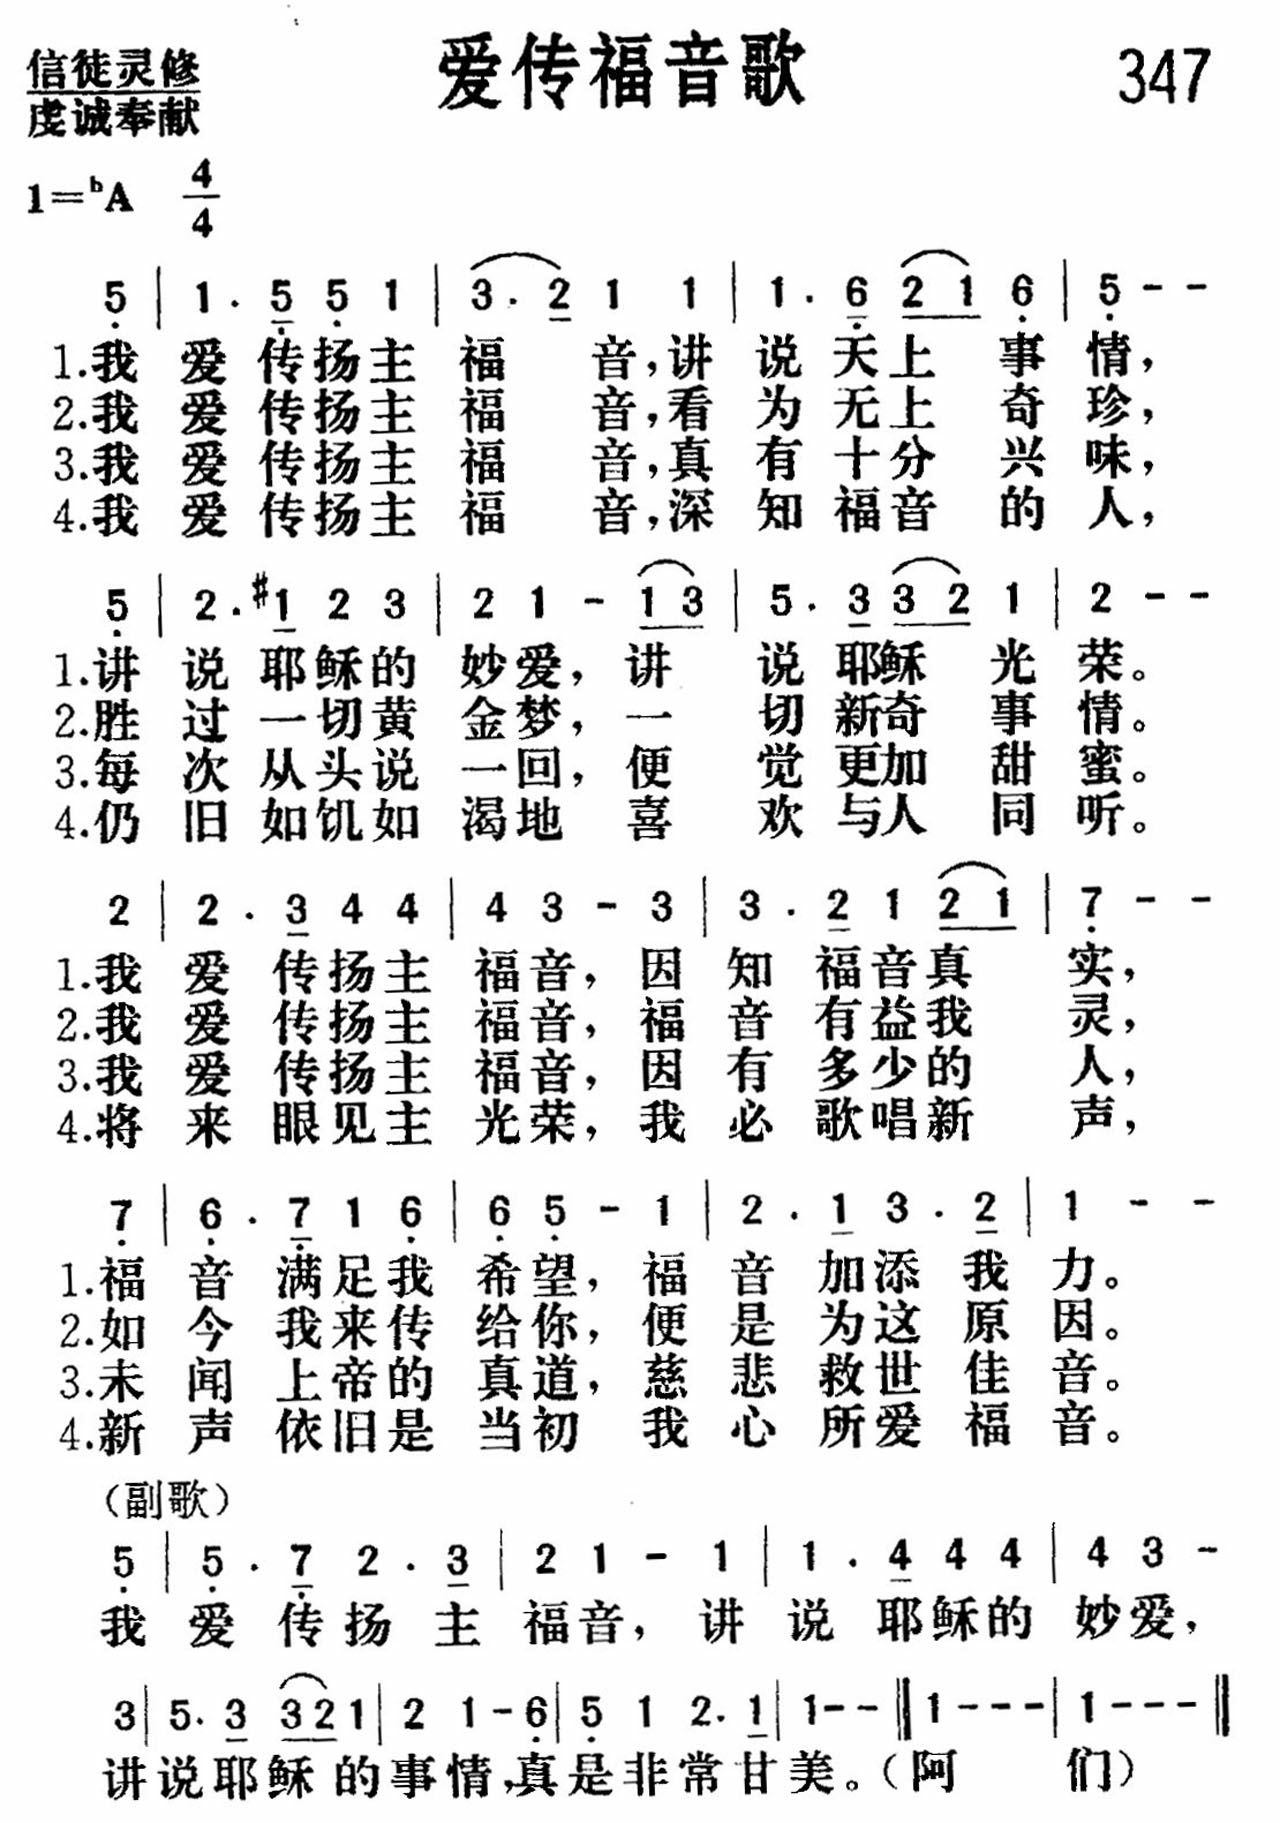 爱传福音歌
347
信徒灵修
虔诚奉献
1=ᵇA 4/4
5 | 1 . 5 5 1 | 3 . 2 1 1 | 1 . 6 2 1 6 | 5 - -
1.我 爱 传扬主 福 音,讲 说 天上 事 情,
2.我 爱 传扬主 福 音,看 为 无上 奇 珍,
3.我 爱 传扬主 福 音,真 有 十分 兴 味,
4.我 爱 传扬主 福 音,深 知 福音 的 人,
5 | 2 . #1 2 3 | 2 1 - 1 3 | 5 . 3 3 2 1 | 2 - -
1.讲 说 耶稣的 妙爱, 讲 说 耶稣 光 荣。
2.胜 过 一切黄 金梦, 一 切 新奇 事 情。
3.每 次 从头说 一回, 便 觉 更加 甜 蜜。
4.仍 旧 如饥如 渴地 喜 欢 与人 同 听。
2 | 2 . 3 4 4 | 4 3 - 3 | 3 . 2 1 2 1 | 7 - -
1.我 爱 传扬主 福音, 因 知 福音真 实,
2.我 爱 传扬主 福音, 福 音 有益我 灵,
3.我 爱 传扬主 福音, 因 有 多少的 人,
4.将 来 眼见主 光荣, 我 必 歌唱新 声,
7 | 6 . 7 1 6 | 6 5 - 1 | 2 . 1 3 . 2 | 1 - -
1.福 音 满足我 希望, 福 音 加添 我 力。
2.如 今 我来传 给你, 便 是 为这 原 因。
3.未 闻 上帝的 真道, 慈 悲 救世 佳 音。
4.新 声 依旧是 当初 我 心 所爱 福 音。
(副歌)
5 | 5 . 7 2 . 3 | 2 1 - 1 | 1 . 4 4 4 | 4 3 -
我 爱 传扬 主 福音, 讲 说 耶稣的 妙爱,
3 | 5 . 3 3 2 1 | 2 1 - 6 | 5 1 2 . 1 | 1 - - ‖ 1 - - - | 1 - - - ‖
讲说耶稣 的事情,真是非常甘美。(阿 们)